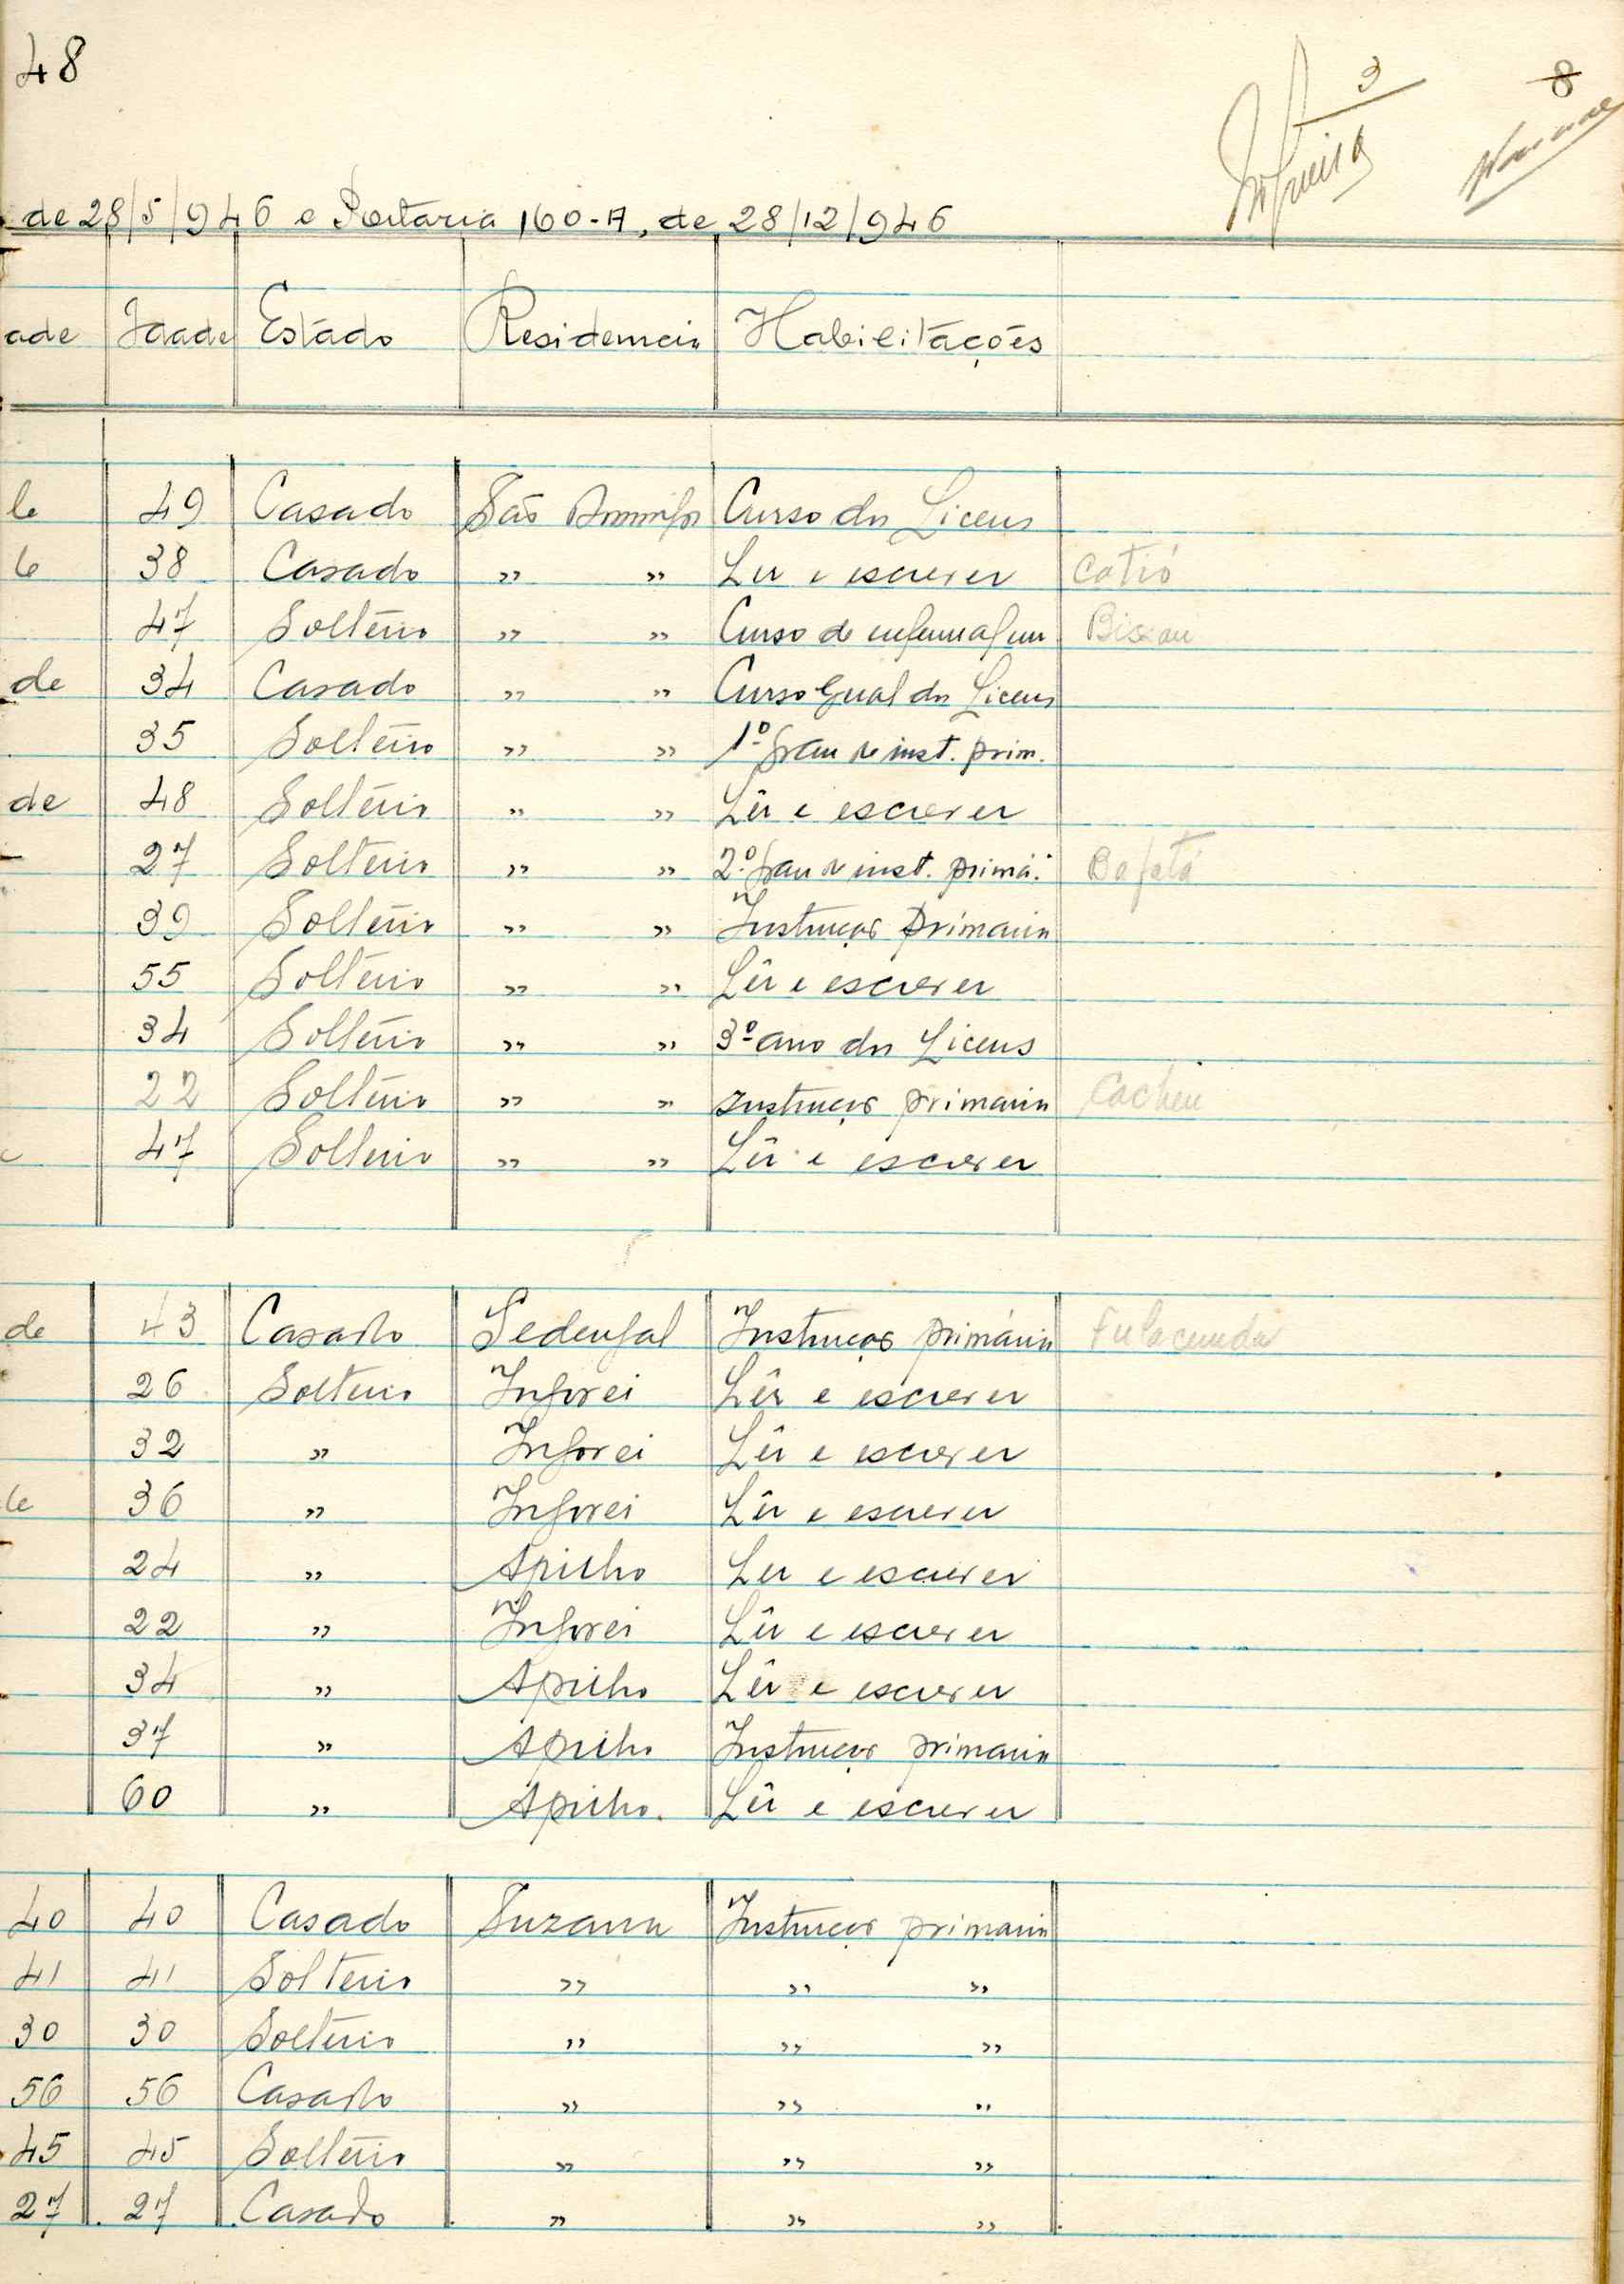 48
3
8
de 28/5/946 e Portaria 160-A, de 28/12/946
ade Idade Estado Residencia Habilitações
le 49 Casado São Domingos Curso do Liceu
le 38 Casado " " Ler e escrever Catió
47 Solteiro " " Curso de enfermagem Bissau
de 34 Casado " " Curso Geral do Liceu
35 Solteiro " " 1º grau de inst. prim.
de 48 Solteiro " " Lêr e escrever
27 Solteiro " " 2º grau de inst. primá. Bafatá
39 Solteiro " " Instrução primaria
55 Solteiro " " Lêr e escrever
34 Solteiro " " 3º ano do Liceu
22 Solteiro " " Instrução primaria Cacheu
47 Solteiro " " Lêr e escrever
de 43 Casado Sedengal Instrução primária Fulacunda
26 Solteiro Ingorei Lêr e escrever
32 " Ingorei Lêr e escrever
le 36 " Ingorei Lêr e escrever
24 " Apilho Ler e escrever
22 " Ingorei Lêr e escrever
34 " Apilho Lêr e escrever
37 " Apilho Instrução primaria
60 " Apilho. Lêr e escrever
40 40 Casado Suzana Instrução primaria
41 41 Solteiro " " "
30 30 Solteiro " " "
56 56 Casado " " "
45 45 Solteiro " " "
27 27 Casado " " "